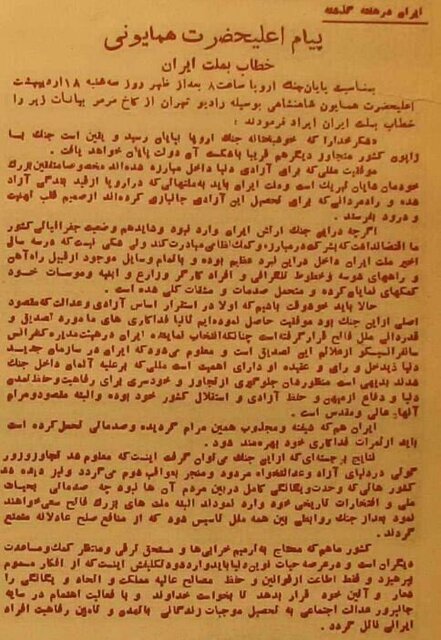 ایران در هفته گذشته
پیام اعلیحضرت همایونی
خطاب بملت ایران
بمناسبت پایان جنك اروپا ساعت ۸ بعد از ظهر روز سه شنبه ۱۸ اردیبهشت
اعلیحضرت همایون شاهنشاهی بوسیله رادیو تهران از کاخ مرمر بیانات زیر را
خطاب بملت ایران ایراد فرمودند :
«شکر خدا را که خوشبختانه جنك اروپا بپایان رسید و یقین است جنك با
ژاپون کشور متجاوز دیگر هم قریبا باشکست آن دولت پایان خواهد یافت .
موفقیت مللی که برای آزادی دنیا داخل مبارزه شده اند مخصوصا متفقین بزرك
خودمان شایان تبریك است و ملت ایران باید بملتهائی که در اروپا از قید بندگی آزاد
شده و راد مردانی که برای تحصیل این آزادی جانبازی کرده اند از صمیم قلب تهنیت
و درود بفرستد .
اگرچه در این جنك ارتش ایران وارد نبود و شاید هم وضعیت جغرافیائی کشور
ما اقتضا نداشت که بشرکت در مبارزه و کمك نظامی مبادرت کند ولی شکی نیست که در سه سال
اخیر ملت ایران داخل در این نبرد عظیم بوده و با تمام وسایل موجود از قبیل راه آهن
و راههای شوسه و خطوط تلگرافی و افراد کارگر و زارع و ابنیه و موسسات خود
کمکهای نمایان کرده و متحمل صدمات و مشقات کلی شده است .
حالا باید خوشوقت باشیم که اولا در استقرار اساس آزادی و عدالت که مقصود
اصلی از این جنك بود موفقیت حاصل نموده ایم ثانیا فداکاری های ما مورد تصدیق و
قدردانی ملل فاتح قرار گرفته است چنانکه انتخاب نماینده ایران در هیئت مدیره کنفرانس
سانفرانسیسکو از علائم این تصدیق است و معلوم میشود که ایران در سازمان جدید
دنیا ذیدخل و رای و عقیده او دارای اهمیت است مللی که بر علیه آلمان داخل جنك
شدند بدیهی است منظورشان جلوگیری از تجاوز و خودسری برای رفاهیت و حفظ تمدن
دنیا و دفاع از میهن و حفظ آزادی و استقلال کشور خود بوده و البته مقصود و مرام
آنها عالی و مقدس است .
ایران هم که شیفته و مجذوب همین مرام گردیده و صدماتی تحمل کرده است
باید از ثمرات فداکاری خود بهره مند شود .
نتایج برجسته ای که از این جنك میتوان گرفت اینست که معلوم شد تجاوز و زور
گوئی در دنیای آزاد و عدالتخواه مردود و منجر بعواقب شوم می گردد و نیز دیده شد
کشور هائی که وحدت و یگانگی کامل در بین مردم آن ها نبود چه صدماتی بحیات
ملی و افتخارات تاریخی خود وارد نمودند البته ملت های بزرك فاتح سعی خواهند
نمود بعد از جنك روابطی بین همه ملل تاسیس شود که از منافع صلح عادلانه متمتع
گردند .
کشور ما هم که محتاج به ترمیم خرابی ها و مستحق ترقی و منتظر کمك و مساعدت
دیگران است و در عرصه حیات نوین دنیا باید وارد شود تکلیفش اینست که از افکار مسموم
بپرهیزد و فقط اطاعت از قوانین و حفظ مصالح عالیه مملکت و اتحاد و یگانگی را
شعار و آئین خود قرار بدهد تا بخواست خداوند و با فعالیت اهتمام در سایه
جانپرور عدالت اجتماعی به تحصیل موجبات زندگانی با تمدن و تامین رفاهیت افراد
ایرانی نائل گردد .